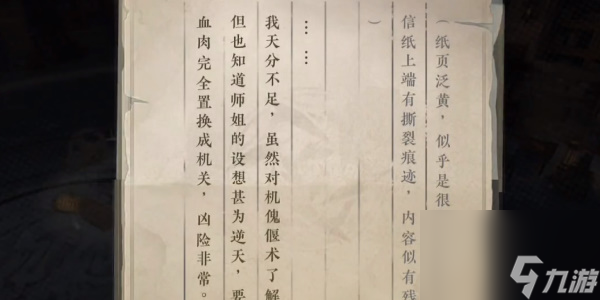 （纸页泛黄，似乎是很
信纸上端有撕裂痕迹，内容似有残
）
……
我天分不足，虽然对机傀偃术了解
但也知道师姐的设想甚为逆天，要
血肉完全置换成机关，凶险非常。
九游